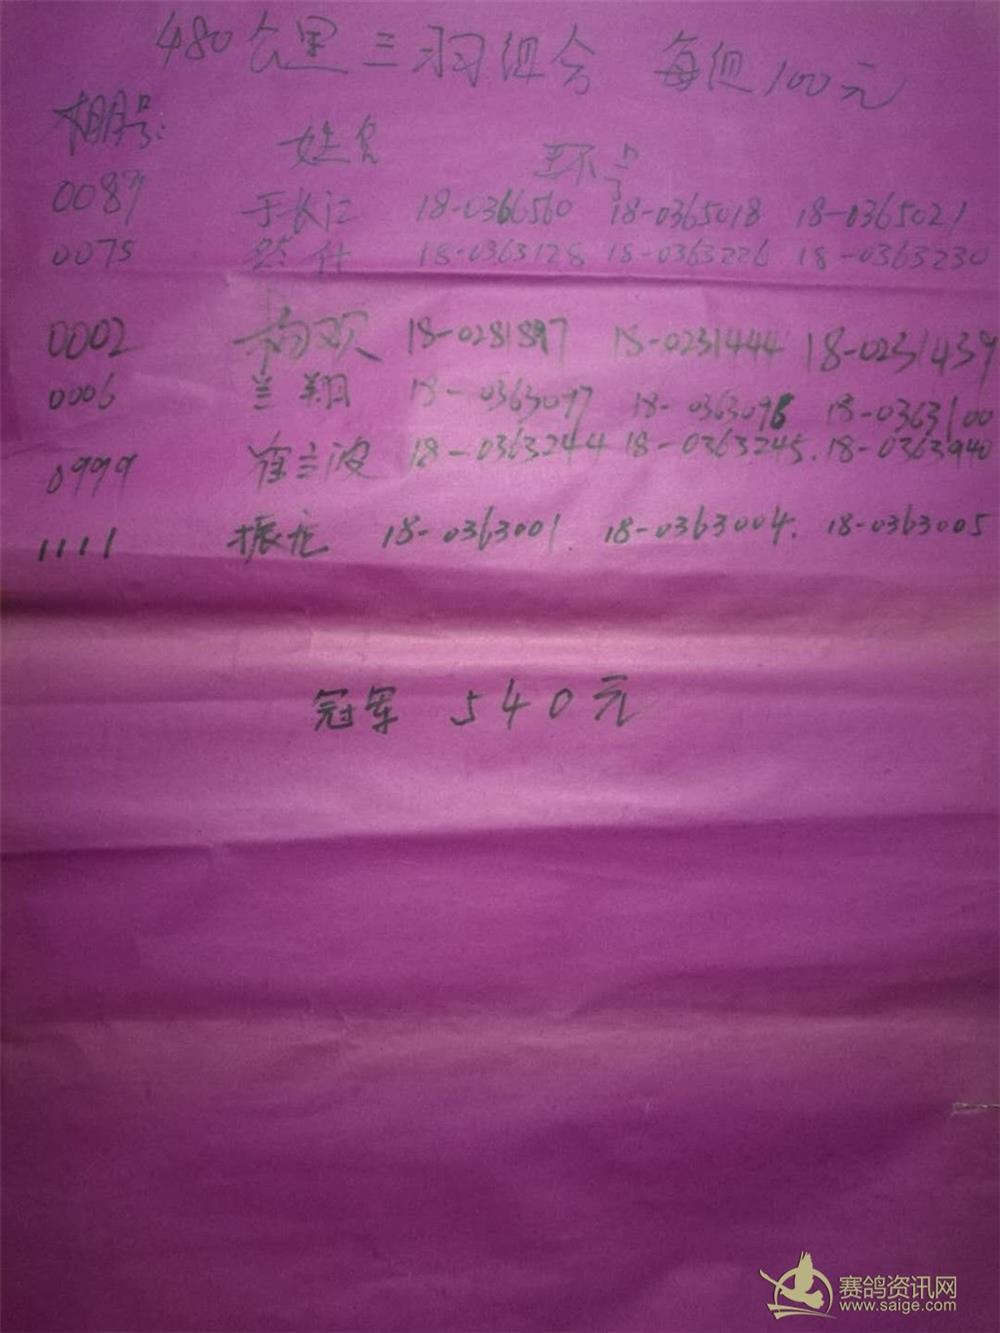 480公里三羽组合 每组100元
棚号: 姓名 环号
0089 于长江 18-0366560 18-0365018 18-0365021
0075 18-0363128 18-0363226 18-0363230
0002 18-0281897 18-0231444 18-0231439
0006 兰翔 18-0363097 18-0363096 18-0363100
0999 崔兰波 18-0363244 18-0363245. 18-0363940
1111 振龙 18-0363001. 18-0363004. 18-0363005
冠军 540元
赛鸽资讯网
www.saige.com